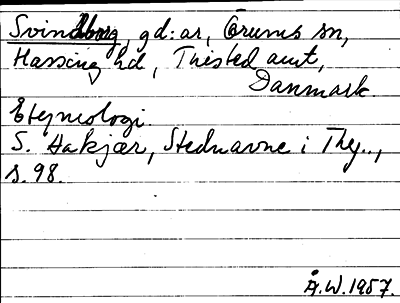 Svindborg, gd:ar, Ørums sn,
Hassing hd, Thisted amt,
Danmark
Etymologi
S. Hakjær, Stednavne i Thy..,
s. 98.
Å.W. 1957.